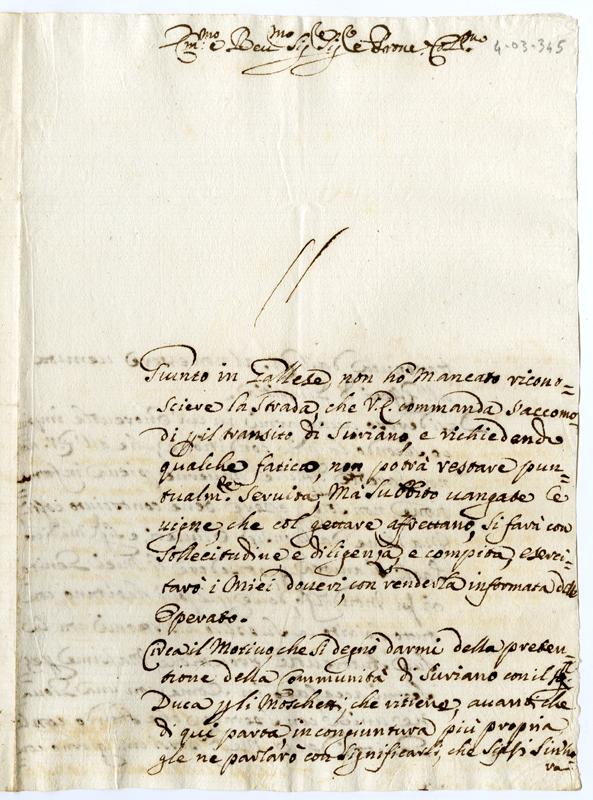 Em.mo e Rev.mo Sig.re Sig.re e Prone Col.mo
4-03-345
Giunto in Gallese, non hò Mancato ricono=
sciere la Strada, che V.E. commanda s'accomo=
di p il transito di Suriano, e richiedendo
qualche fatica, non potrà restare pun=
tualm.te Servita; Mà Subbito uangate le
uigne, che col gettare affrettano, si farà con
Sollecitudine e diligenza, e compita, eserci=
tarò i Miei doueri, con renderla informata dell
Operato.
Circa il Motiuo, che si degnò darmi della preten=
tione della Communità di Suriano con il
Duca p li Moschetti, che ritiene, auanti che
di quì parta, in congiuntura più propria
gle ne parlarò con Significarli, che
ra